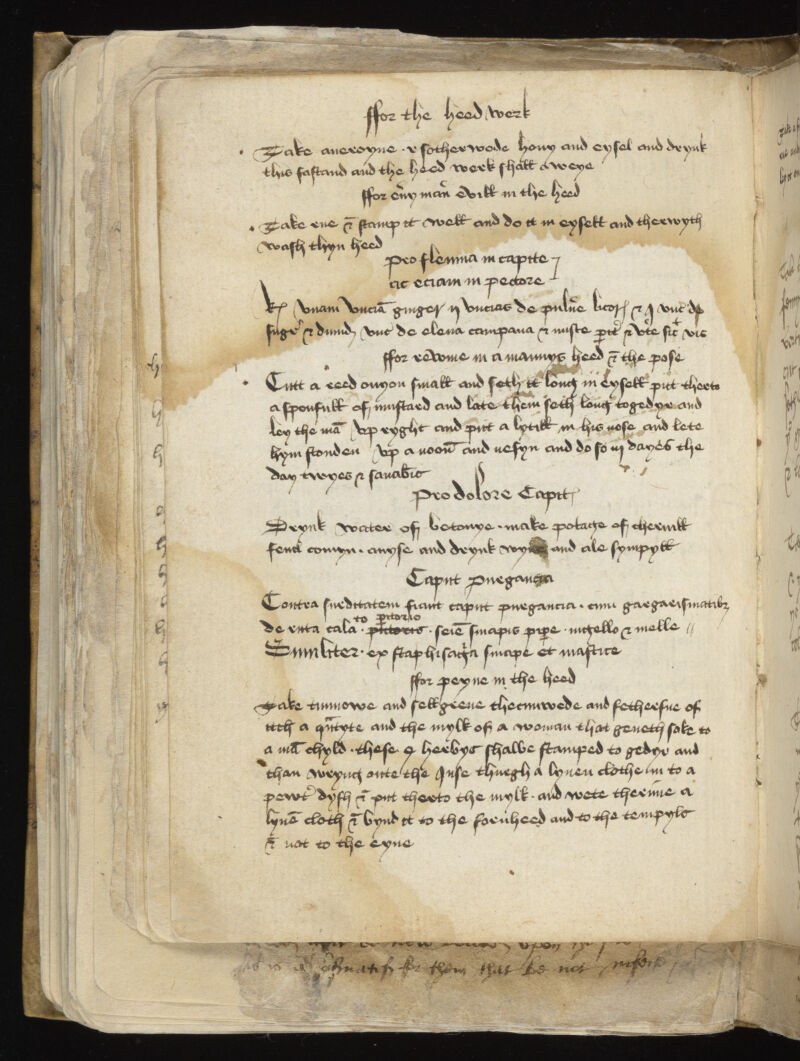 ffor the heed werk
Take averoyne · r sotherwode hony and eysel and drynk
this fastand and the heed werk shall aweye
ffor eny man̄ evill in the heed
Take rue & stamp it well and do it in eysell and therwyth
wash thyn heed
Pro flemma in capite
ac eciam in pectore
R unam unciā ginger ij uncias de pulue licor & j unc de
sugr & dimid unc de elena campana & miste & vte sic
ffor rewme in a mannys heed & the pose
Cutt a reed onyon small and seth it long in eysell put therto
a sponfull of mustard and late them seth long togedyr and
ley the mā vp ryght and put a lytill in his nose and lete
hym stonden vp a noon and nesyn and do so iij dayes the
day twyes & sanabit
Pro dolore Capit
Drynk water of betonye · make potage of chervill
fenel comyn · anyse and drynk wyne and ale sympyll
Caput purgancia
Contra surditatem fiant caput purgancia · cum gargarismatibz
de ruta cala to pectorio · seiē sinapis pipe · nigello & melle //
Similiter · ex staphisagra sinape et mastice
ffor peyne in the heed
Take and selfgrene and fetherfue of
itch a qntyte and the mylk of a woman that geveth soke to
a mā chyld · these herbys shalbe stamped to gedyr and
than wryng oute the Juse thurgh a lynen clothe in to a
pewt dysh & put therto the mylk · and wete therinne a
lynē cloth & bynd it to the forheed and to the templs
& not to the eyne
them that be not